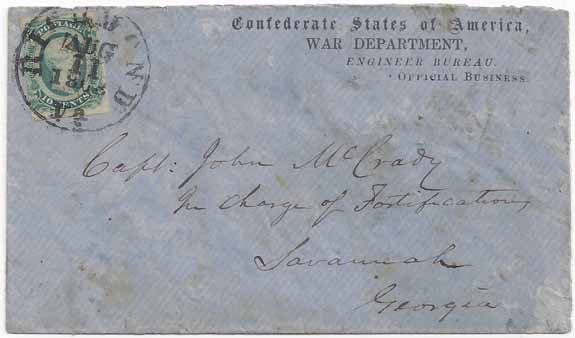 Confederate States of America,
WAR DEPARTMENT,
ENGINEER BUREAU.
OFFICIAL BUSINESS.
RICHMOND
AUG
11
TEN CENTS
Capt: John McCrady
In charge of Fortifications
Savannah
Georgia